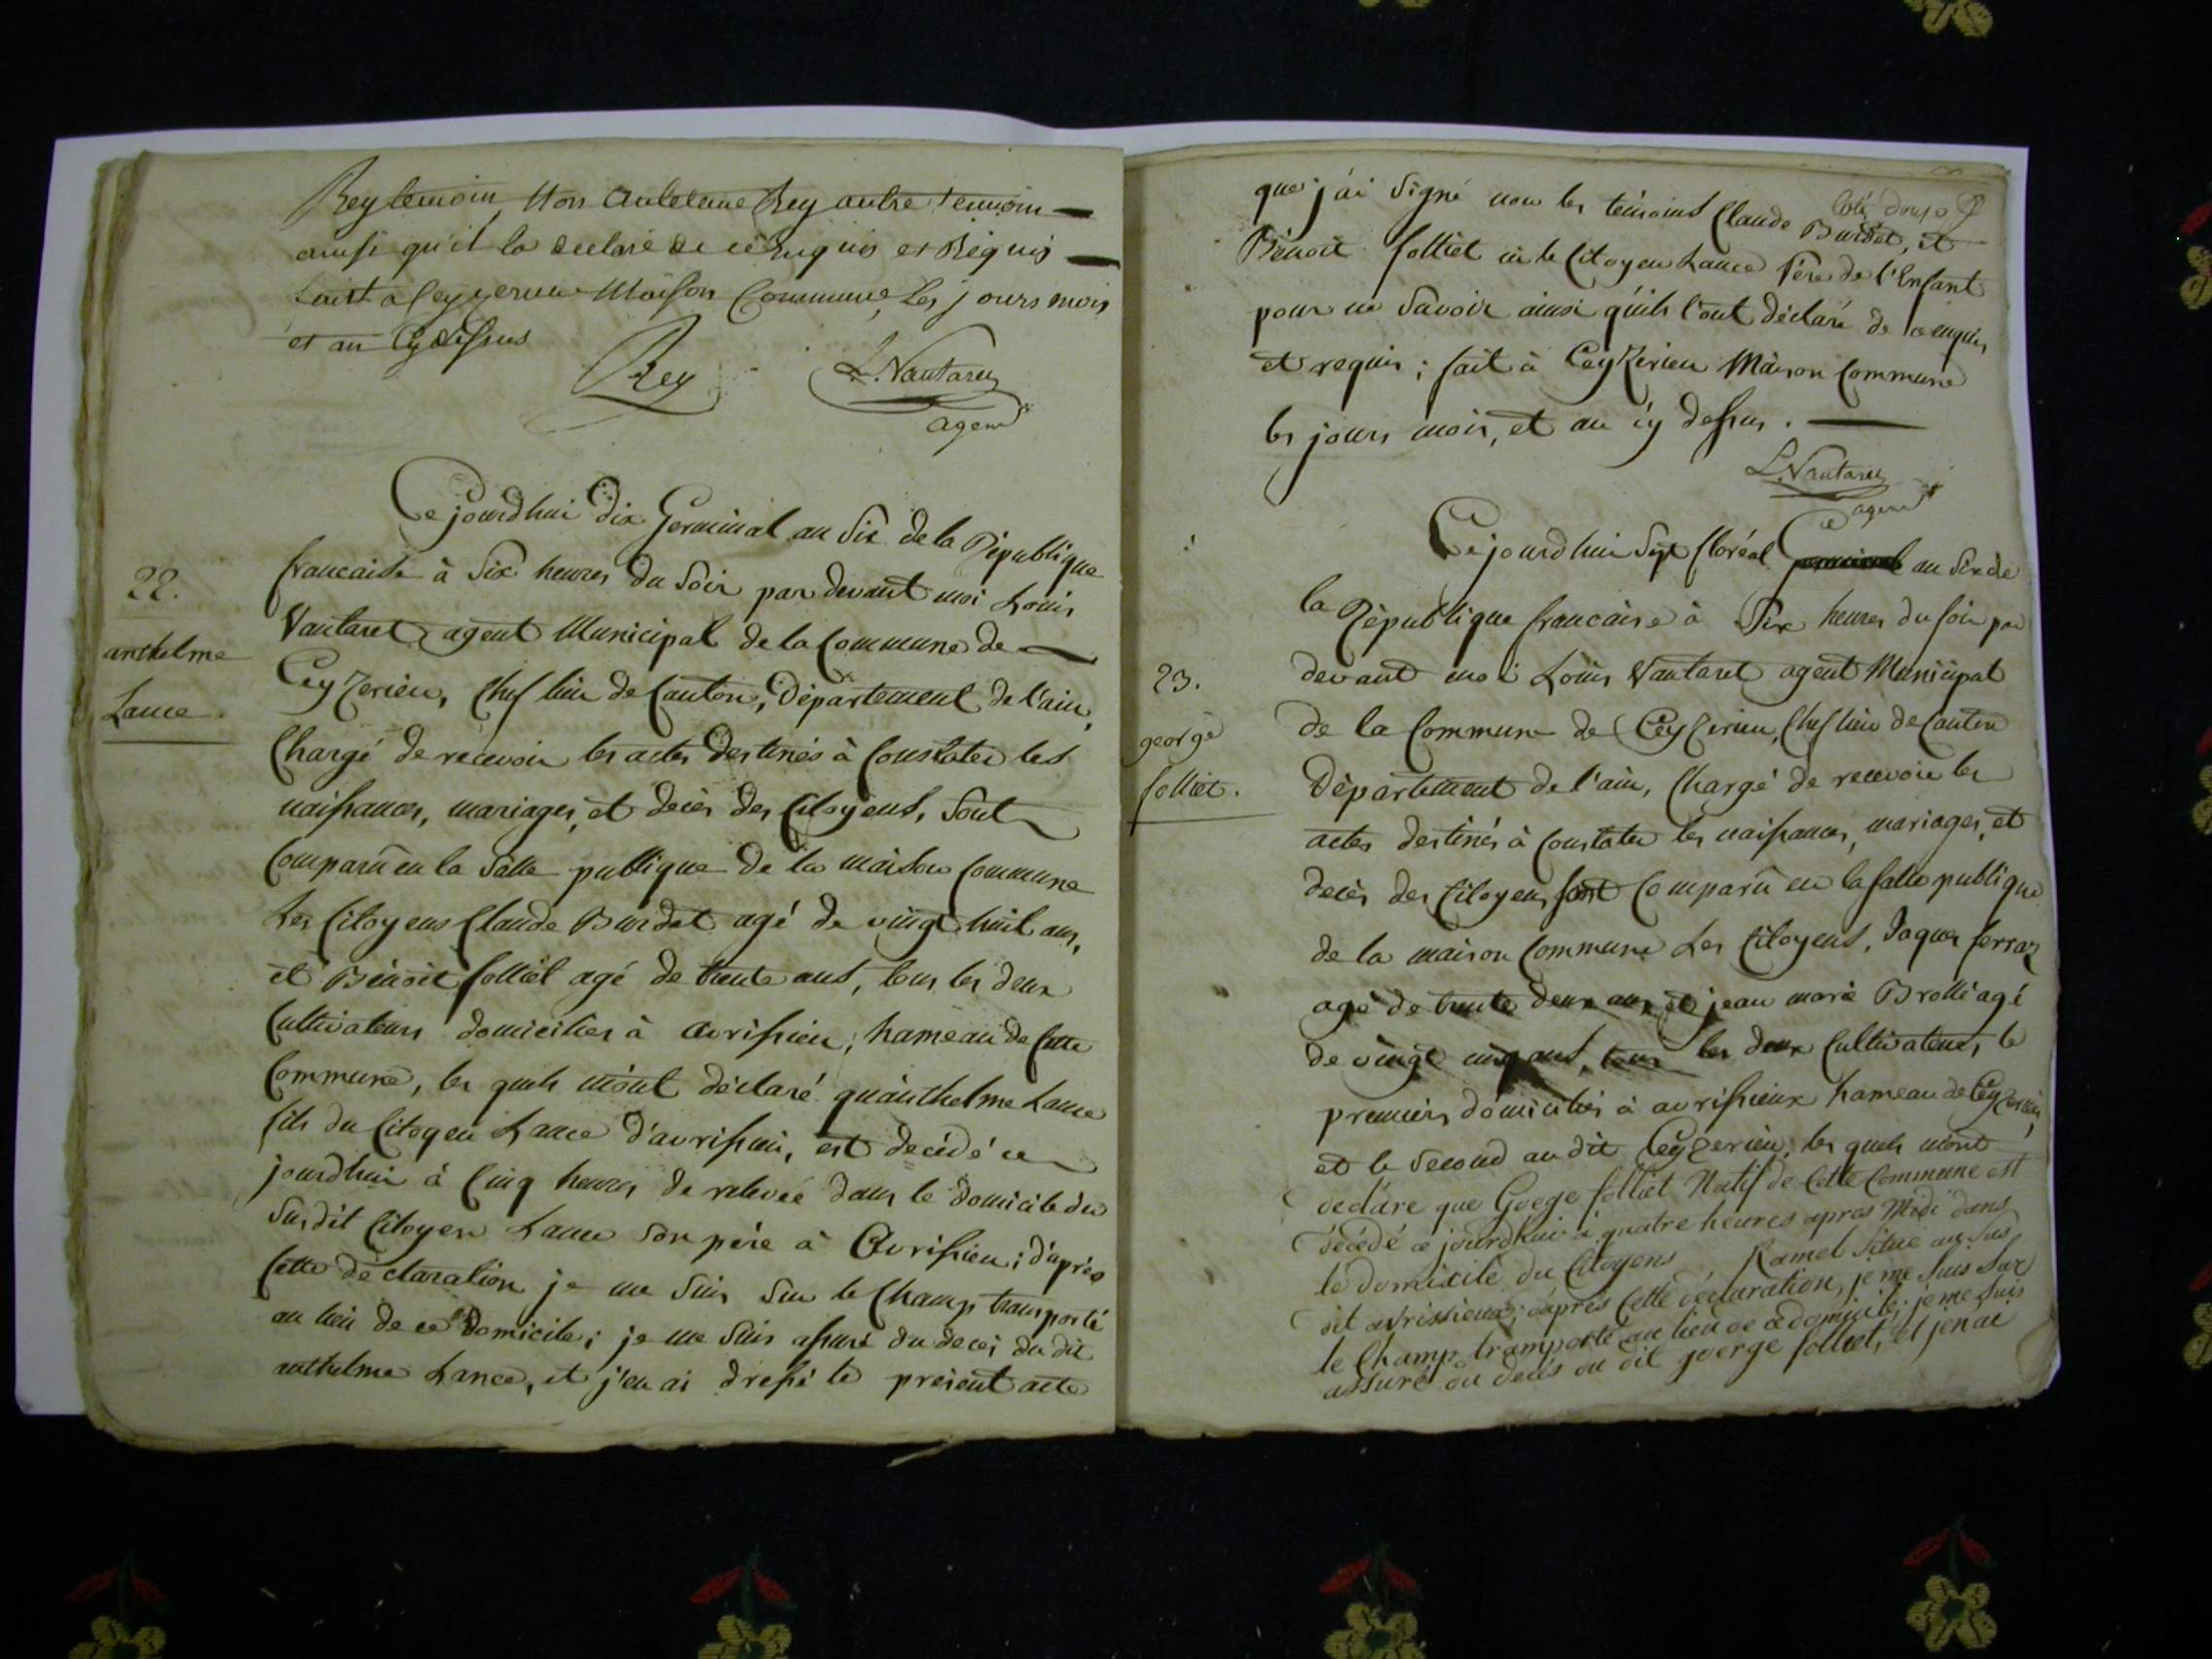 Rey temoin Non Antelme Rey autre temoin
ainsi qu'il la declaré de ce Enquis et Requis
fait a Ceyzerieu Maison Commune, Les jours mois
et an Cy dessus
Rey L. Vautaret
agent
Cejourdhui dix Germinal an Six de la République
francaise à Six heures du Soir par devant moi Louis
Vautaret agent Municipal de la Commune de
Ceyzerieu, Chef lieu de Canton, Département de l'ain,
Chargé de recevoir les actes destinés à Constater les
naissances, mariages, et decès des Citoyens, Sont
Comparû en la Salle publique de la maison Commune
Les Citoyens Claude Burdet agé de vingt huit ans,
et Bénoit folliet agé de trente ans, tous les deux
Cultivateurs domiciliés à avrissieu, hameau de Cette
Commune, les quels m'ont déclaré qu'anthelme Lance
fils du Citoyen Lance d'avrissieu, est decédé ce
jourdhui à Cinq heures de relevée dans le domicile du
Susdit Citoyen Lance Son père à Avrissieu; d'après
Cette déclaration je me Suis Sur le Champ transporté
au lieu de ce Domicile; je me Suis assuré du deces du dit
anthelme Lance, et j'en ai dressé le présent acte
22.
anthelme
Lance.
Coté douze
que j'ai Signé non les témoins Claude Burdet, et
Bénoit folliet ni le Citoyen Lance Père de l'Enfant
pour ne Savoir ainsi qu'ils l'ont déclaré de ce enquis
et requis; fait à Ceyzerieu Maison Commune
les jours mois, et an cy dessus.
L. Vautaret
agent
Cejourdhui Sept floréal Germinal an Six de
la République francaise à Six heures du soir par
devant moi Loüis Vautaret agent Municipal
de la Commune de Ceyzerieu, Chef lieu de Canton
Département de l'ain, Chargé de recevoir les
actes destinés à Constater les naissances, mariages, et
decès des Citoyens sont Comparû en la salle publique
de la maison Commune Les Citoyens, Jaques ferraz
agé de trente deux ans et jean marie Brollié agé
de vingt cinq ans, tous les deux Cultivateurs, le
premier, domiciliés à avrissieux hameau de Ceyzerieu,
et le Second au dit Ceyzerieu; les quels m'ont
declare que Goege folliet Natif de Cette Commune est
décédé ce jourdhui à quatre heures apres Midi dans
le Domicile du Citoyens Ramel Situé au Sus
dit avrissieux; d'après Cette déclaration, je me Suis Sur
le Champ transporté au lieu de ce domicile; je me Suis
assuré du decès du dit goerge folliet, et jen ai
23.
george
folliet.